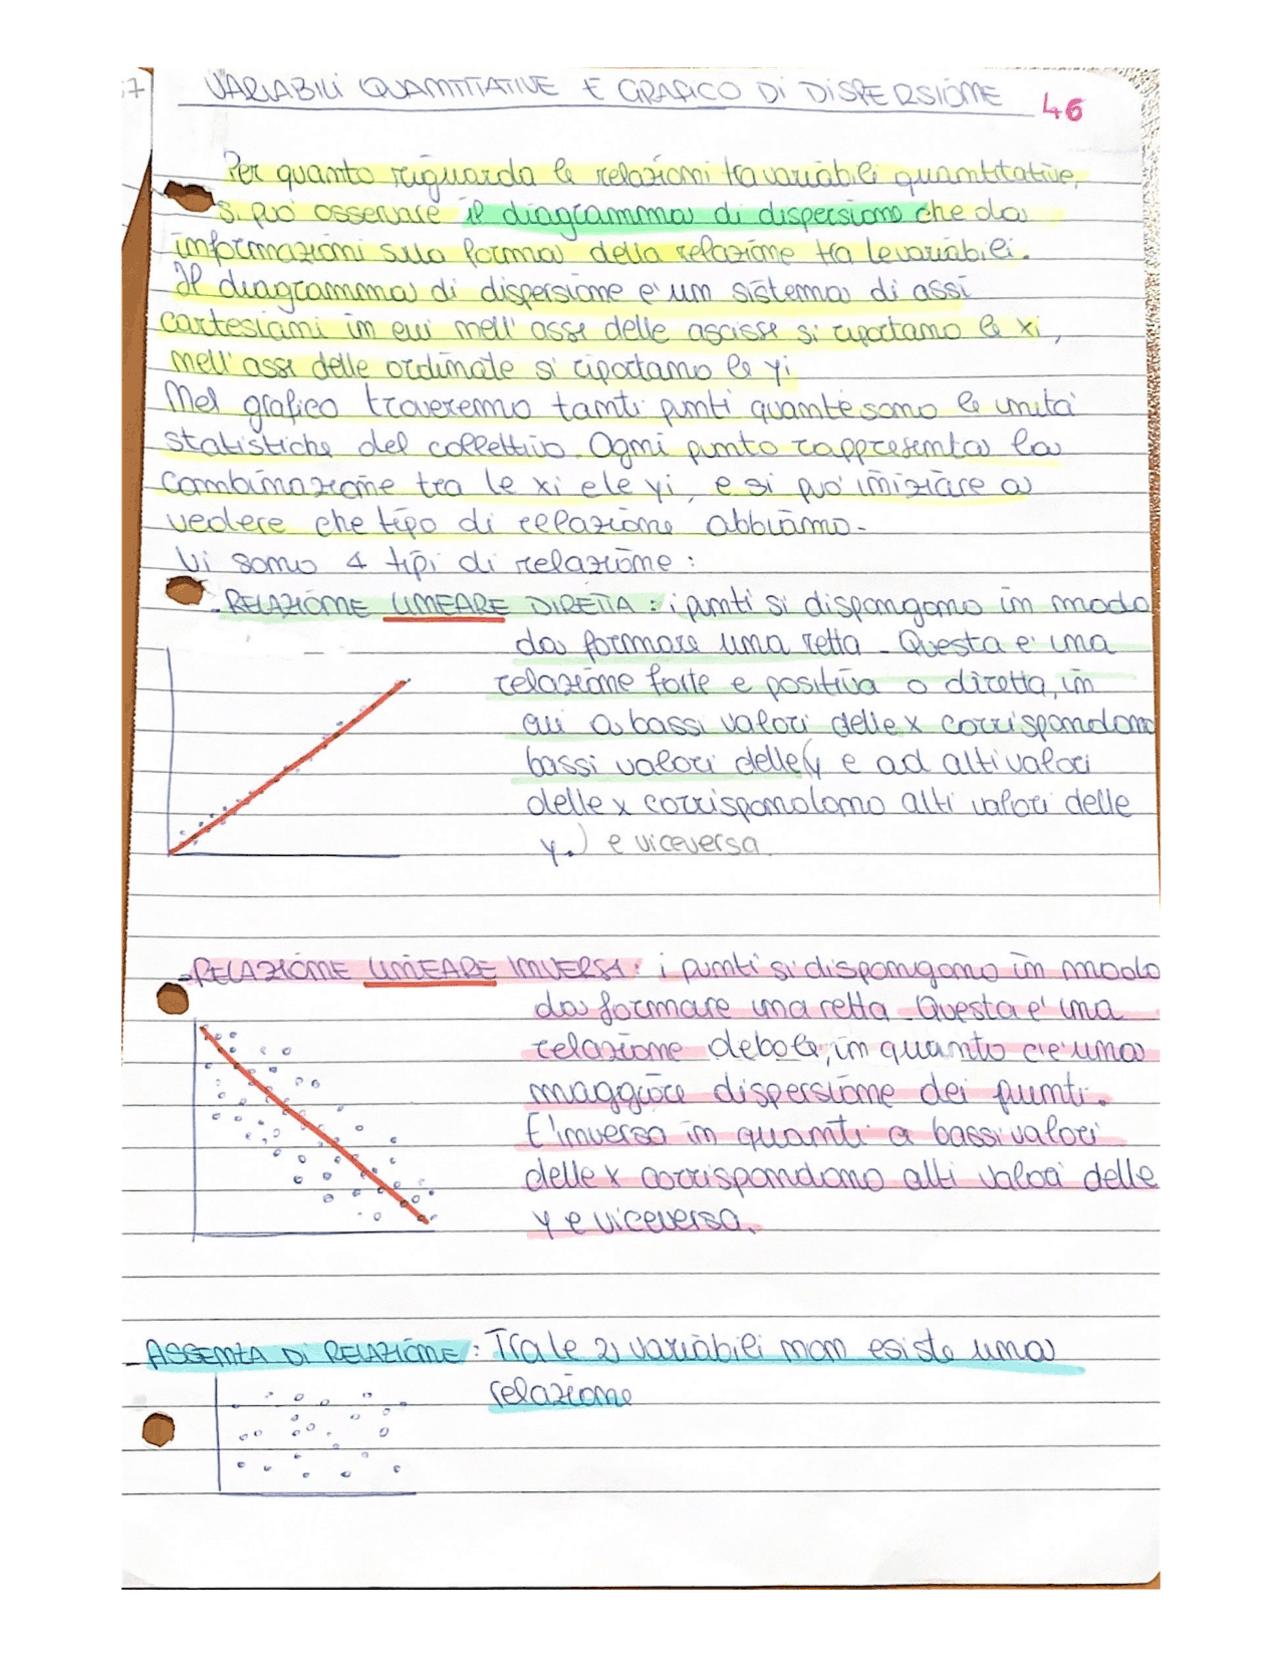 57
VARIABILI QUANTITATIVE E GRAFICO DI DISPERSIONE
46
Per quanto riguarda le relazioni tra variabili quantitative,
si può osservare il diagramma di dispersione che da
informazioni sulla forma della relazione tra le variabili.
Il diagramma di dispersione e' un sistema di assi
cartesiani in cui nell'asse delle ascisse si riportano le xi,
nell'asse delle ordinate si riportano le yi
Nel grafico troveremo tanti punti quante sono le unita'
statistiche del collettivo. Ogni punto rappresenta la
combinazione tra le xi e le yi, e si può iniziare a
vedere che tipo di relazione abbiamo.
Vi sono 4 tipi di relazione:
- RELAZIONE LINEARE DIRETTA: i punti si dispongono in modo
da formare una retta. Questa e' una
relazione forte e positiva o diretta, in
cui a bassi valori delle x corrispondono
bassi valori delle (y e ad alti valori
delle x corrispondono alti valori delle
y.) e viceversa.
- RELAZIONE LINEARE INVERSA: i punti si dispongono in modo
da formare una retta. Questa e' una
relazione debole, in quanto c'e' una
maggiore dispersione dei punti.
E' inversa in quanti a bassi valori
delle x corrispondono alti valori delle
y e viceversa.
- ASSENZA DI RELAZIONE: Tra le 2 variabili non esiste una
relazione